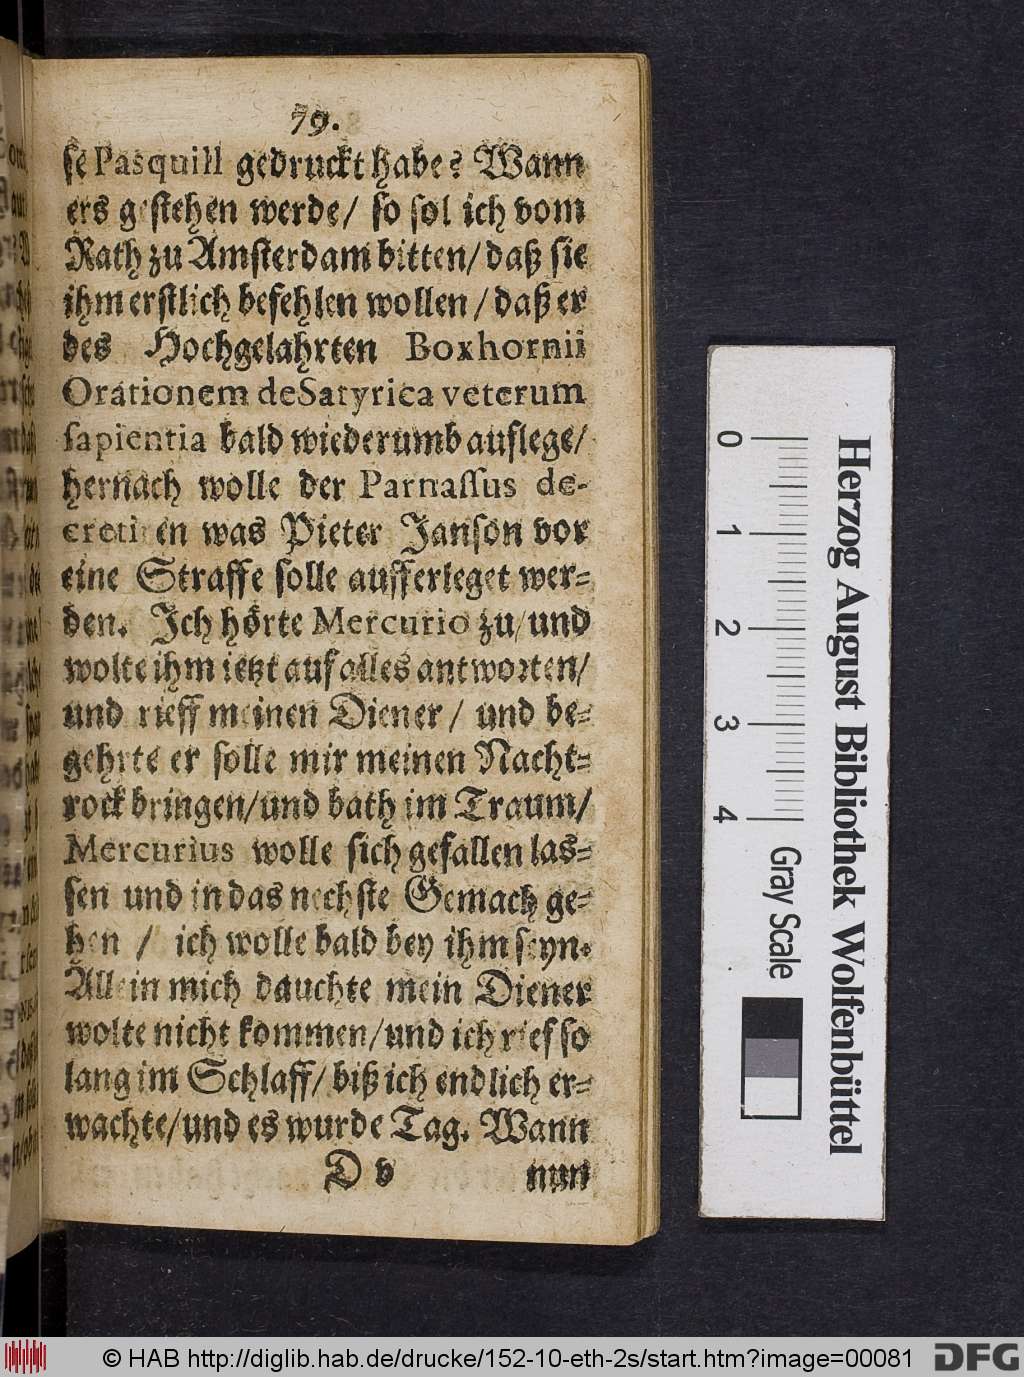 79.
se Pasquill gedruckt habe? Wann
ers gestehen werde/ so sol ich vom
Rath zu Amsterdam bitten/ daß sie
ihm erstlich befehlen wollen/ daß er
des Hochgelahrten Boxhornii
Orationem de Satyrica veterum
sapientia bald wiederumb auflege/
hernach wolle der Parnassus de-
cretiren was Pieter Janson vor
eine Straffe solle aufferleget wer-
den. Ich hörte Mercurio zu/ und
wolte ihm ietzt auf alles antworten/
und rieff meinen Diener/ und be-
gehrte er solle mir meinen Nacht-
rock bringen/ und bath im Traum/
Mercurius wolle sich gefallen las-
sen und in das nechste Gemach ge-
hen / ich wolle bald bey ihm seyn.
Allein mich dauchte mein Diener
wolte nicht kommen/ und ich rief so
lang im Schlaff/ biß ich endlich er-
wachte/ und es wurde Tag. Wann
D v nun
0 1 2 3 4
Gray Scale
Herzog August Bibliothek Wolfenbüttel
© HAB http://diglib.hab.de/drucke/152-10-eth-2s/start.htm?image=00081
DFG